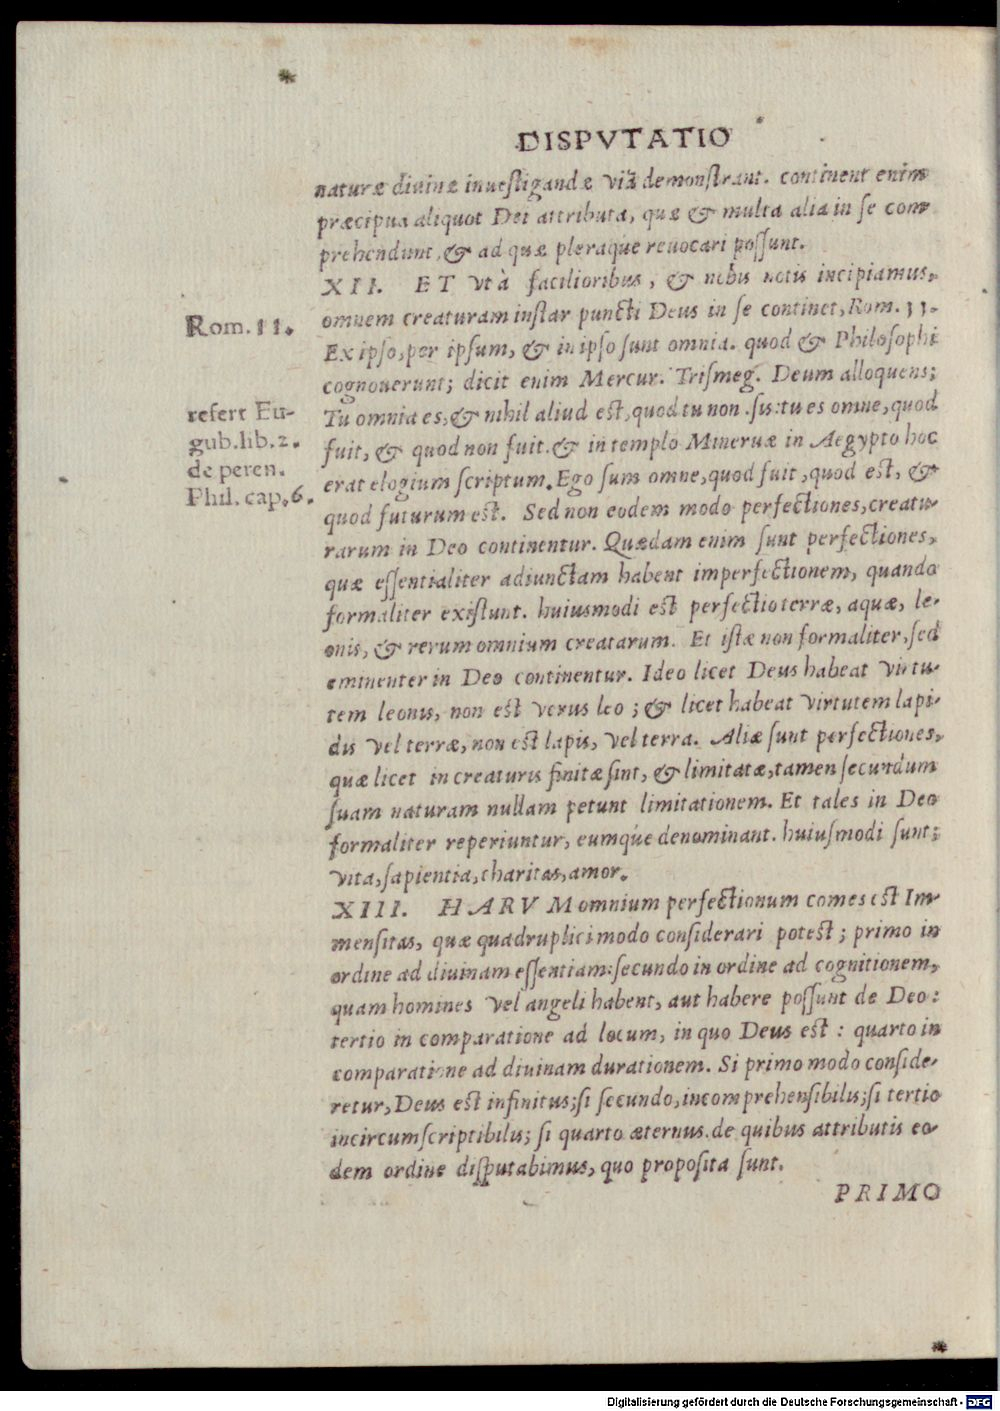 DISPVTATIO
naturæ diuinæ inuestigandæ viã demonstrant. continent enim
præcipua aliquot Dei attributa, quæ & multa alia in se com
prehendunt, & ad quæ pleraque reuocari possunt.
XII. ET vt à facilioribus, & nobis notis incipiamus,
omnem creaturam instar puncti Deus in se continet, Rom. 11.
Rom. 11.
Ex ipso, per ipsum, & in ipso sunt omnia. quod & Philosophi
cognouerunt; dicit enim Mercur. Trismeg. Deum alloquens;
Tu omnia es, & nihil aliud est, quod tu non sis: tu es omne, quod
refert Eu-
gub. lib. 2.
de peren.
Phil. cap. 6.
fuit, & quod non fuit. & in templo Mineruæ in Aegypto hoc
erat elogium scriptum. Ego sum omne, quod fuit, quod est, &
quod futurum est. Sed non eodem modo perfectiones, creatu-
rarum in Deo continentur. Quædam enim sunt perfectiones,
quæ essentialiter adiunctam habent imperfectionem, quando
formaliter existunt. huiusmodi est perfectio terræ, aquæ, le-
onis, & rerum omnium creatarum. Et istæ non formaliter, sed
eminenter in Deo continentur. Ideo licet Deus habeat virtu-
tem leonis, non est verus leo; & licet habeat virtutem lapi-
dis vel terræ, non est lapis, vel terra. Aliæ sunt perfectiones,
quæ licet in creaturis finitæ sint, & limitatæ, tamen secundum
suam naturam nullam petunt limitationem. Et tales in Deo
formaliter reperiuntur, eumque denominant. huiusmodi sunt;
vita, sapientia, charitas, amor.
XIII. HARVM omnium perfectionum comes est Im-
mensitas, quæ quadruplici modo considerari potest; primo in
ordine ad diuinam essentiam: secundo in ordine ad cognitionem,
quam homines vel angeli habent, aut habere possunt de Deo:
tertio in comparatione ad locum, in quo Deus est: quarto in
comparatione ad diuinam durationem. Si primo modo conside-
retur, Deus est infinitus; si secundo, incomprehensibilis; si tertio
incircumscriptibilis; si quarto æternus. de quibus attributis eo-
dem ordine disputabimus, quo proposita sunt.
PRIMO
Digitalisierung gefördert durch die Deutsche Forschungsgemeinschaft - DFG